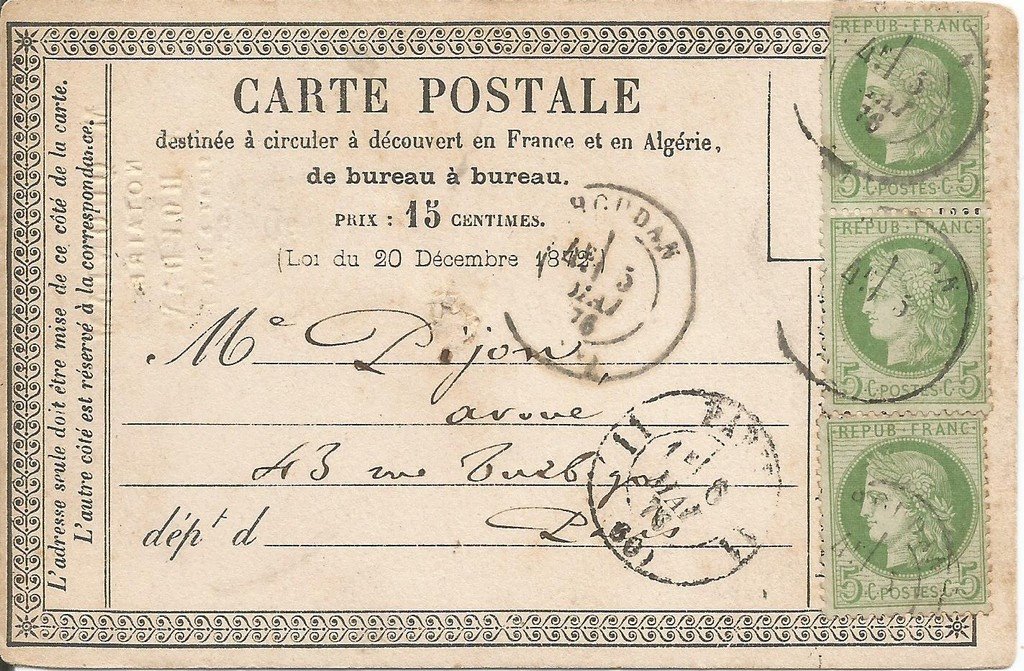 CARTE POSTALE
destinée à circuler à découvert en France et en Algérie,
de bureau à bureau.
PRIX : 15 CENTIMES.
(Loi du 20 Décembre 1872)
L'adresse seule doit être mise de ce côté de la carte.
L'autre côté est réservé à la correspondance.
Me Pijon
avoué
43 rue Turbigo
dépt d P
HOUDAN
4E 5
MAI
76
PARIS
11
1E 6
MAI
76
(60)
REPUB·FRANC·
4E 5
MAI
76
5·C·POSTES·C·5
REPUB·FRANC·
4E 5
5·C·POSTES·C·5
REPUB·FRANC·
5·C·POSTES·C·5